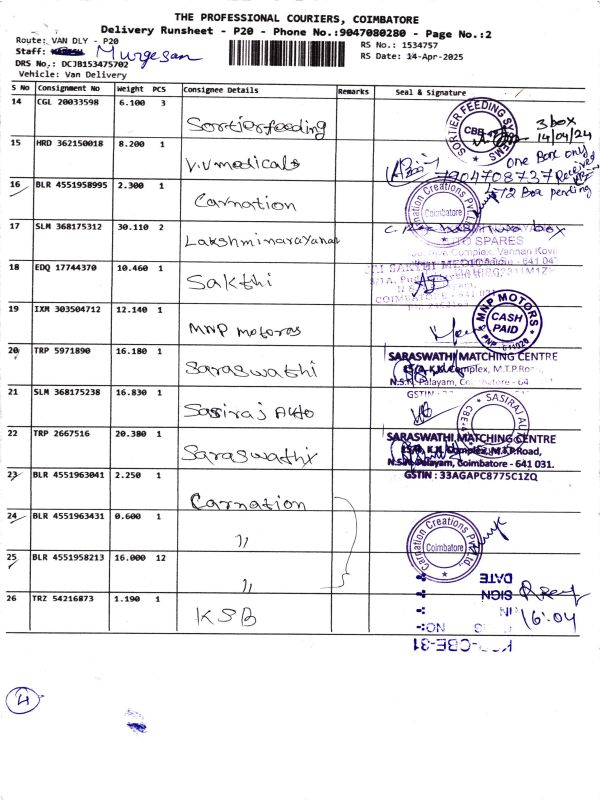 THE PROFESSIONAL COURIERS, COIMBATORE
Delivery Runsheet - P20 - Phone No.:9047080280 - Page No.:2
Route: VAN DLY - P20
RS No.: 1534757
Staff: Murgesan
RS Date: 14-Apr-2025
DRS No.: DCJB153475702
Vehicle: Van Delivery
S No Consignment No Weight PCS Consignee Details Remarks Seal & Signature
14 CGL 20033598 6.100 3 Sortierfeeding
SORTIER FEEDING SYSTEMS
3 box
14/04/24
15 HRD 362150018 8.200 1 V.V medicals
one Box only
7904708727 Received
12 Box pending
16 BLR 4551958995 2.300 1 Carnation
Carnation Creations Pvt. Ltd.
Coimbatore
17 SLM 368175312 30.110 2 Lakshminarayanan
box
SPARES
18 EDQ 17744370 10.460 1 Sakthi
19 IXM 303504712 12.140 1 MNP motoras
MNP MOTORS
CASH
PAID
20 TRP 5971890 16.180 1 Saraswathi
SARASWATHI MATCHING CENTRE
Complex, M.T.P.Road,
N.S.N. Palayam, Coimbatore - 64
GSTIN
21 SLM 368175238 16.830 1 Sasiraj Auto
SASIRAJ AU
CBE-
22 TRP 2667516 20.380 1 Saraswathi
SARASWATHI MATCHING CENTRE
15/9, K.K. Complex, M.T.P.Road,
N.S.N. Palayam, Coimbatore - 641 031.
GSTIN : 33AGAPC8775C1ZQ
23 BLR 4551963041 2.250 1 Carnation
24 BLR 4551963431 0.600 1 "
Carnation Creations Pvt. Ltd.,
Coimbatore
25 BLR 4551958213 16.000 12 "
DATE
SIGN
26 TRZ 54216873 1.190 1 KSB
16:04
NO:
CBE-31
4